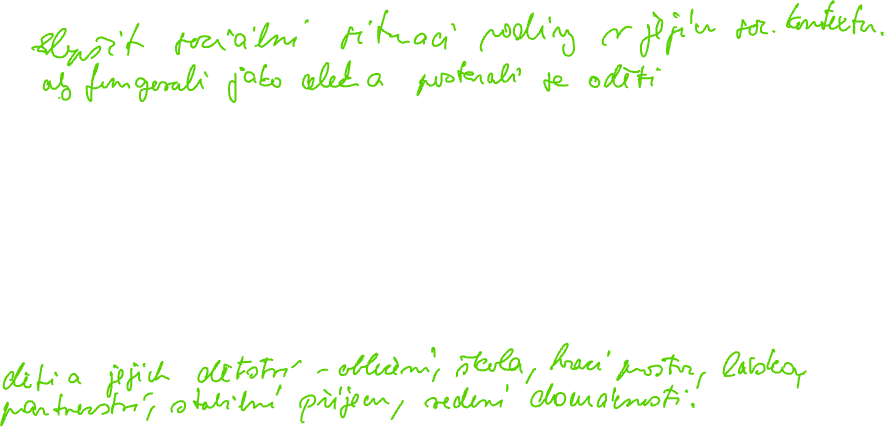 zlepšit sociální situaci rodiny v jejím soc. kontextu.
aby fungovali jako celek a postarali se o děti
děti a jejich dětství - oblečení, škola, hrací prostor, láska,
partnerství, stabilní příjem, vedení domácnosti.